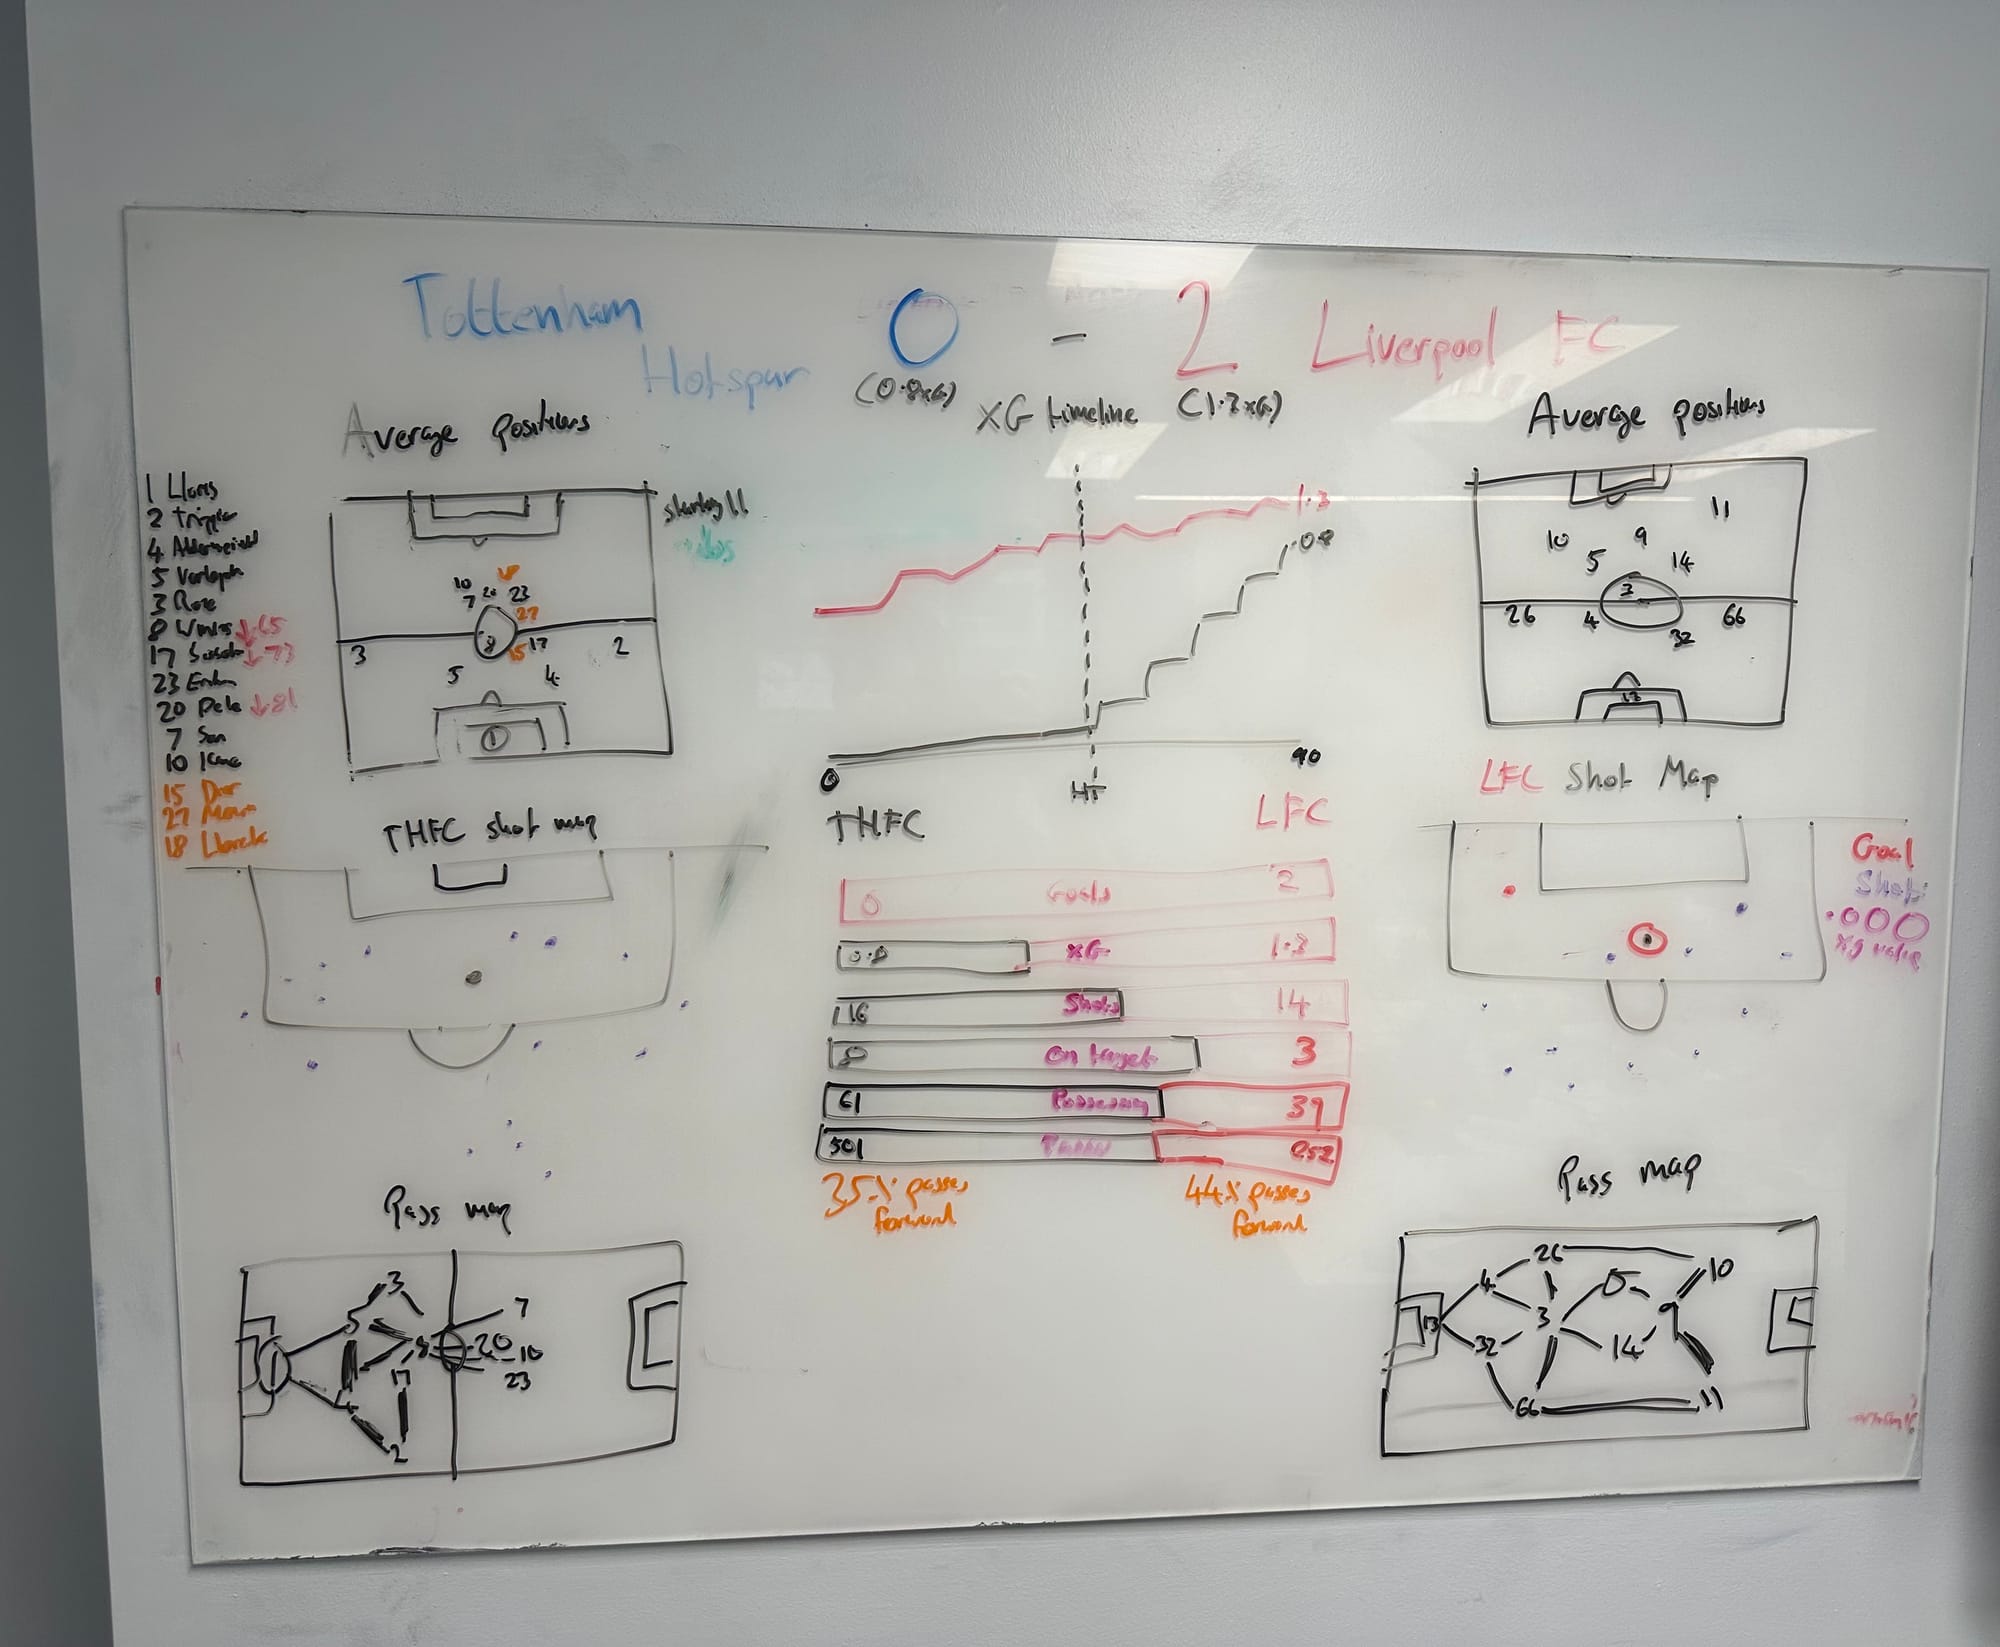 Tottenham
Hotspur
0 - 2
Liverpool FC
(0.8xG)
XG timeline
(1.3xG)
Average positions
1
2
4
5
3 Rose
8 ↓65
17 ↓73
23
20 Dele ↓81
7 Son
10 Kane
15
27
18
starting 11
10
7
20
23
18
27
8
15
17
3
2
5
4
1
1.3
0.8
0
HT
90
Average positions
11
10
9
5
14
3
26
4
66
32
13
THFC shot map
THFC
LFC
0 Goals 2
0.8 xG 1.3
16 Shots 14
8 On target 3
61 Possession 39
501
35% passes
forward
44% passes
forward
LFC Shot Map
Goal
Shots
xg value
Pass map
3
5
7
8
20
10
1
17
23
4
2
Pass map
26
10
4
5
13
3
9
32
14
66
11